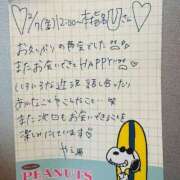 2/7(金)12:00~ 本指名Uさん
お久しぶりの再会でした
またお会いできてHAPPY♡
いろいろな近況話し合ったり
あんなことやこんなこと…♡
また次回もお会いできることを
楽しみにしています
PEANUTS